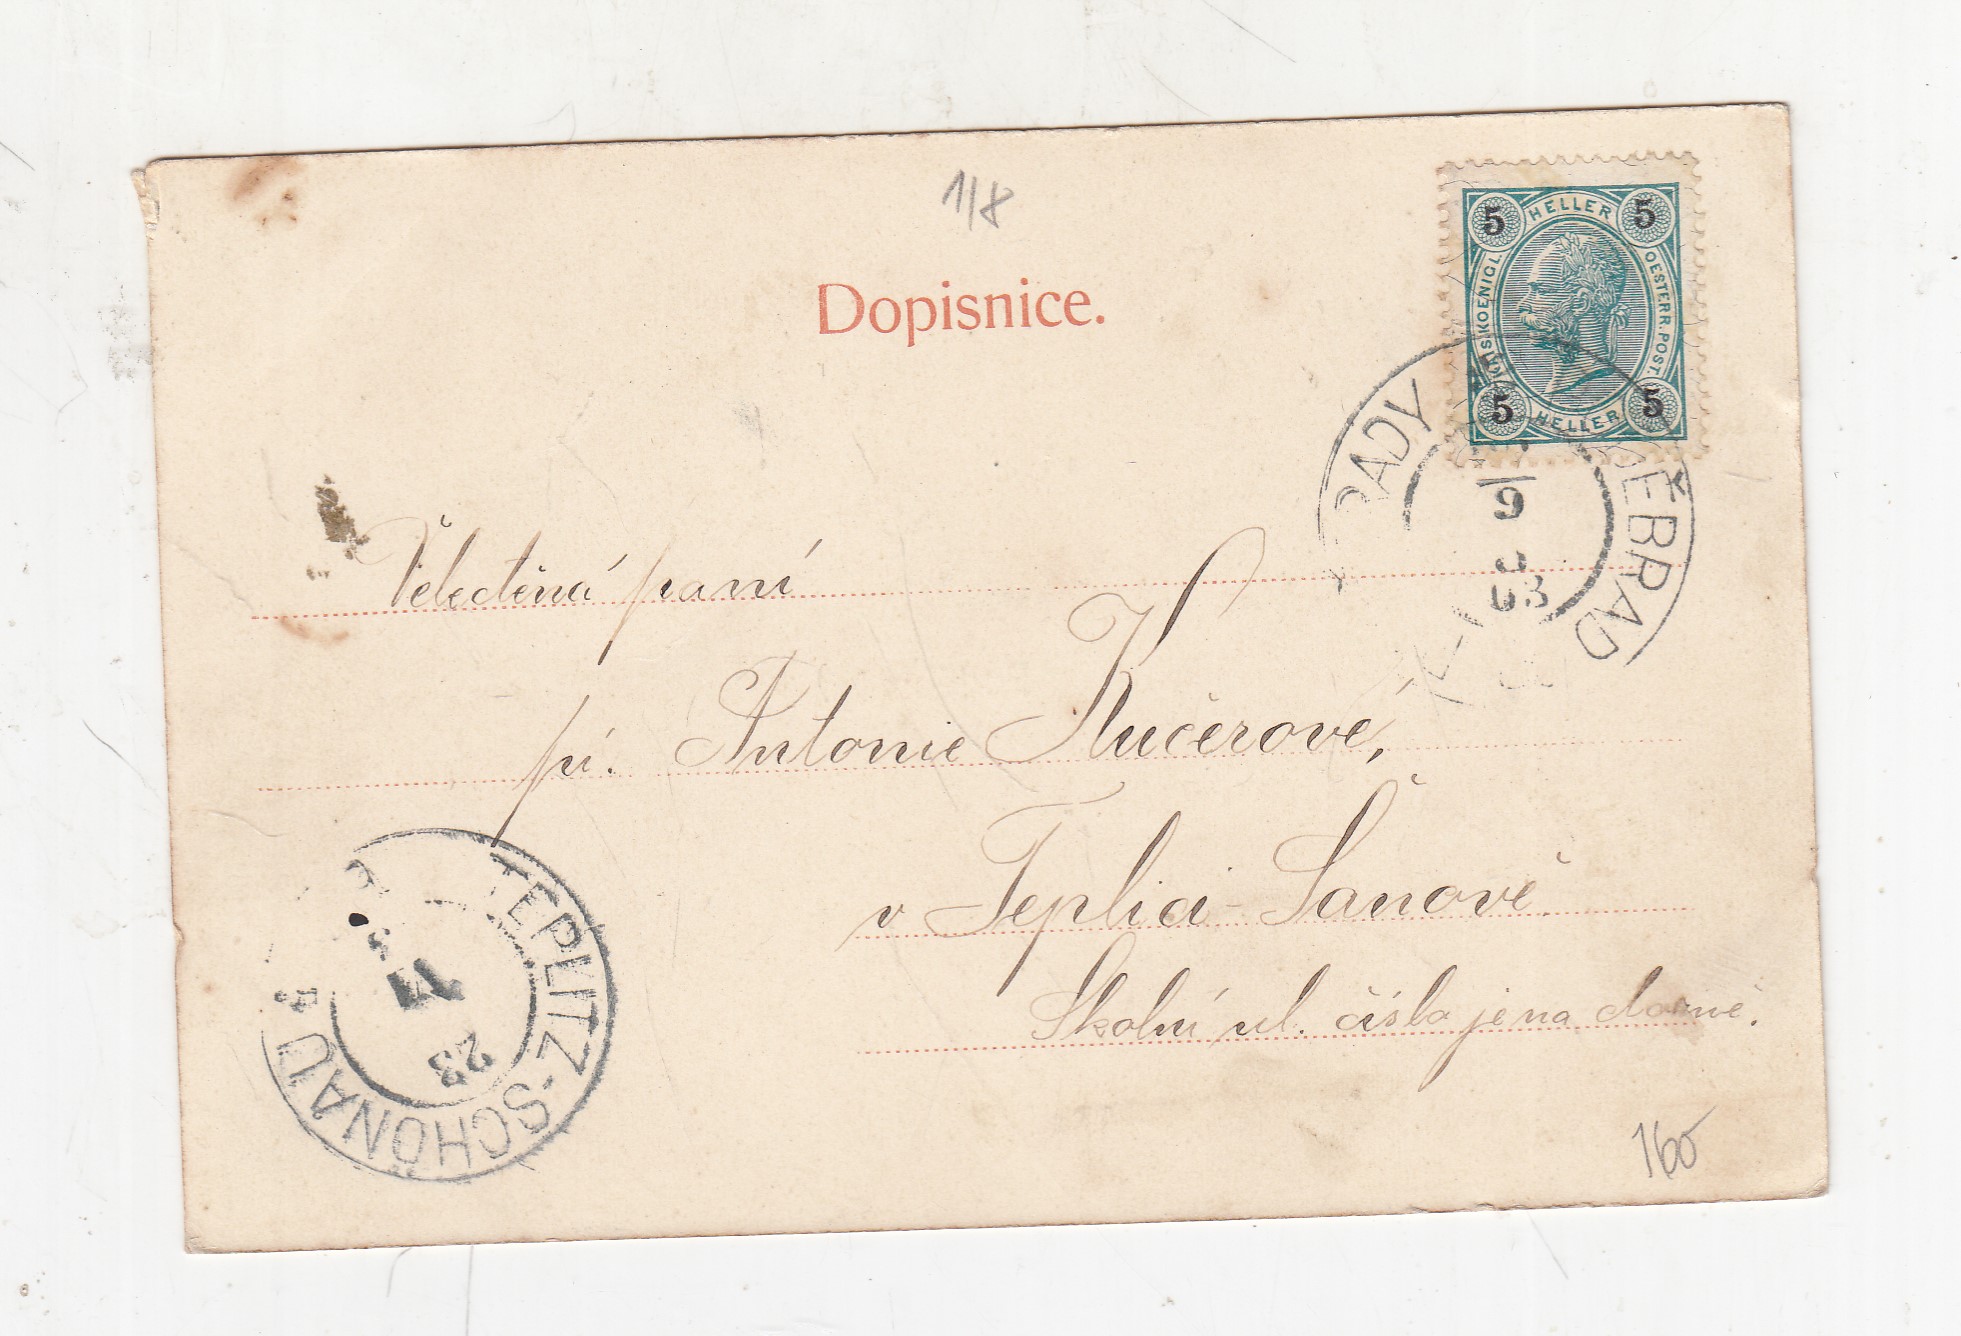 1/8
Dopisnice.
5 HELLER 5
KAIS. KOENIGL. OESTERR. POST.
5 HELLER 5
9
03
DĚBRAD
RADY
Velectěná paní
pí. Antonie Kučerové,
v Teplici-Šanově
Školní ul. číslo je na domě.
TEPLITZ-SCHÖNAU
23
VI
3
160